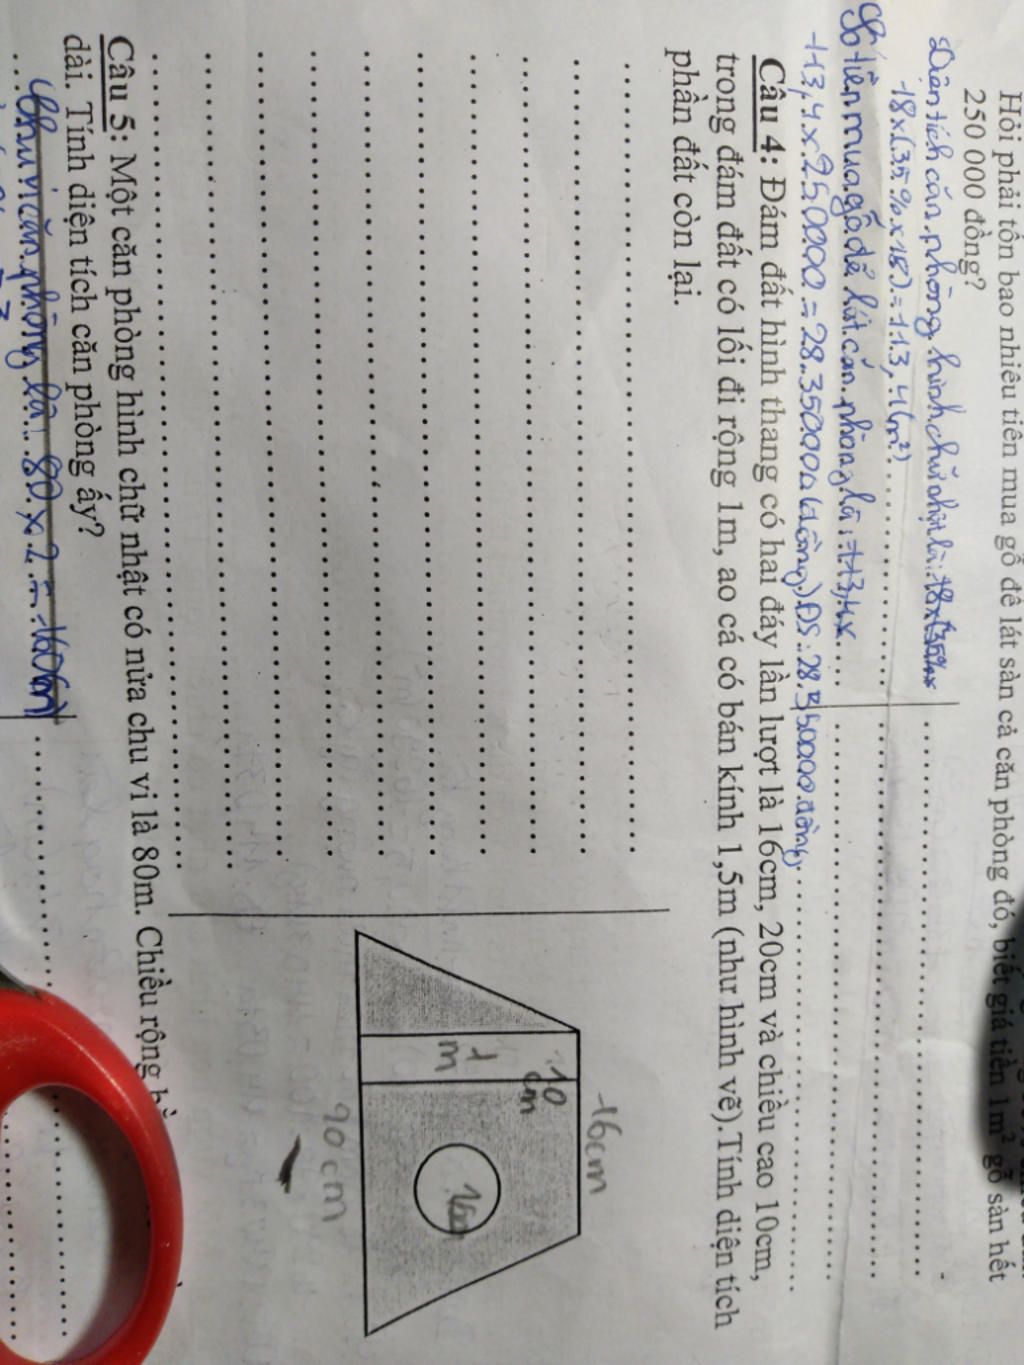 Hỏi phải tốn bao nhiêu tiền mua gỗ để lát sàn cả căn phòng đó, biết giá tiền 1m² gỗ sàn hết
250 000 đồng?
Diện tích căn phòng hình chữ nhật là: 18x(35%x
18x(35%x18)=113,4(m²)
Số tiền mua gỗ để lát căn phòng là: 113,4x
113,4x250000=28.350000(đồng) ĐS:28.350000 đồng
Câu 4: Đám đất hình thang có hai đáy lần lượt là 16cm, 20cm và chiều cao 10cm,
trong đám đất có lối đi rộng 1m, ao cá có bán kính 1,5m (như hình vẽ).Tính diện tích
phần đất còn lại.
16cm
10
cm
1
m
90cm
Câu 5: Một căn phòng hình chữ nhật có nửa chu vi là 80m. Chiều rộng
dài. Tính diện tích căn phòng ấy?
Chu vi căn phòng là: 80 x 2 = 160(m)